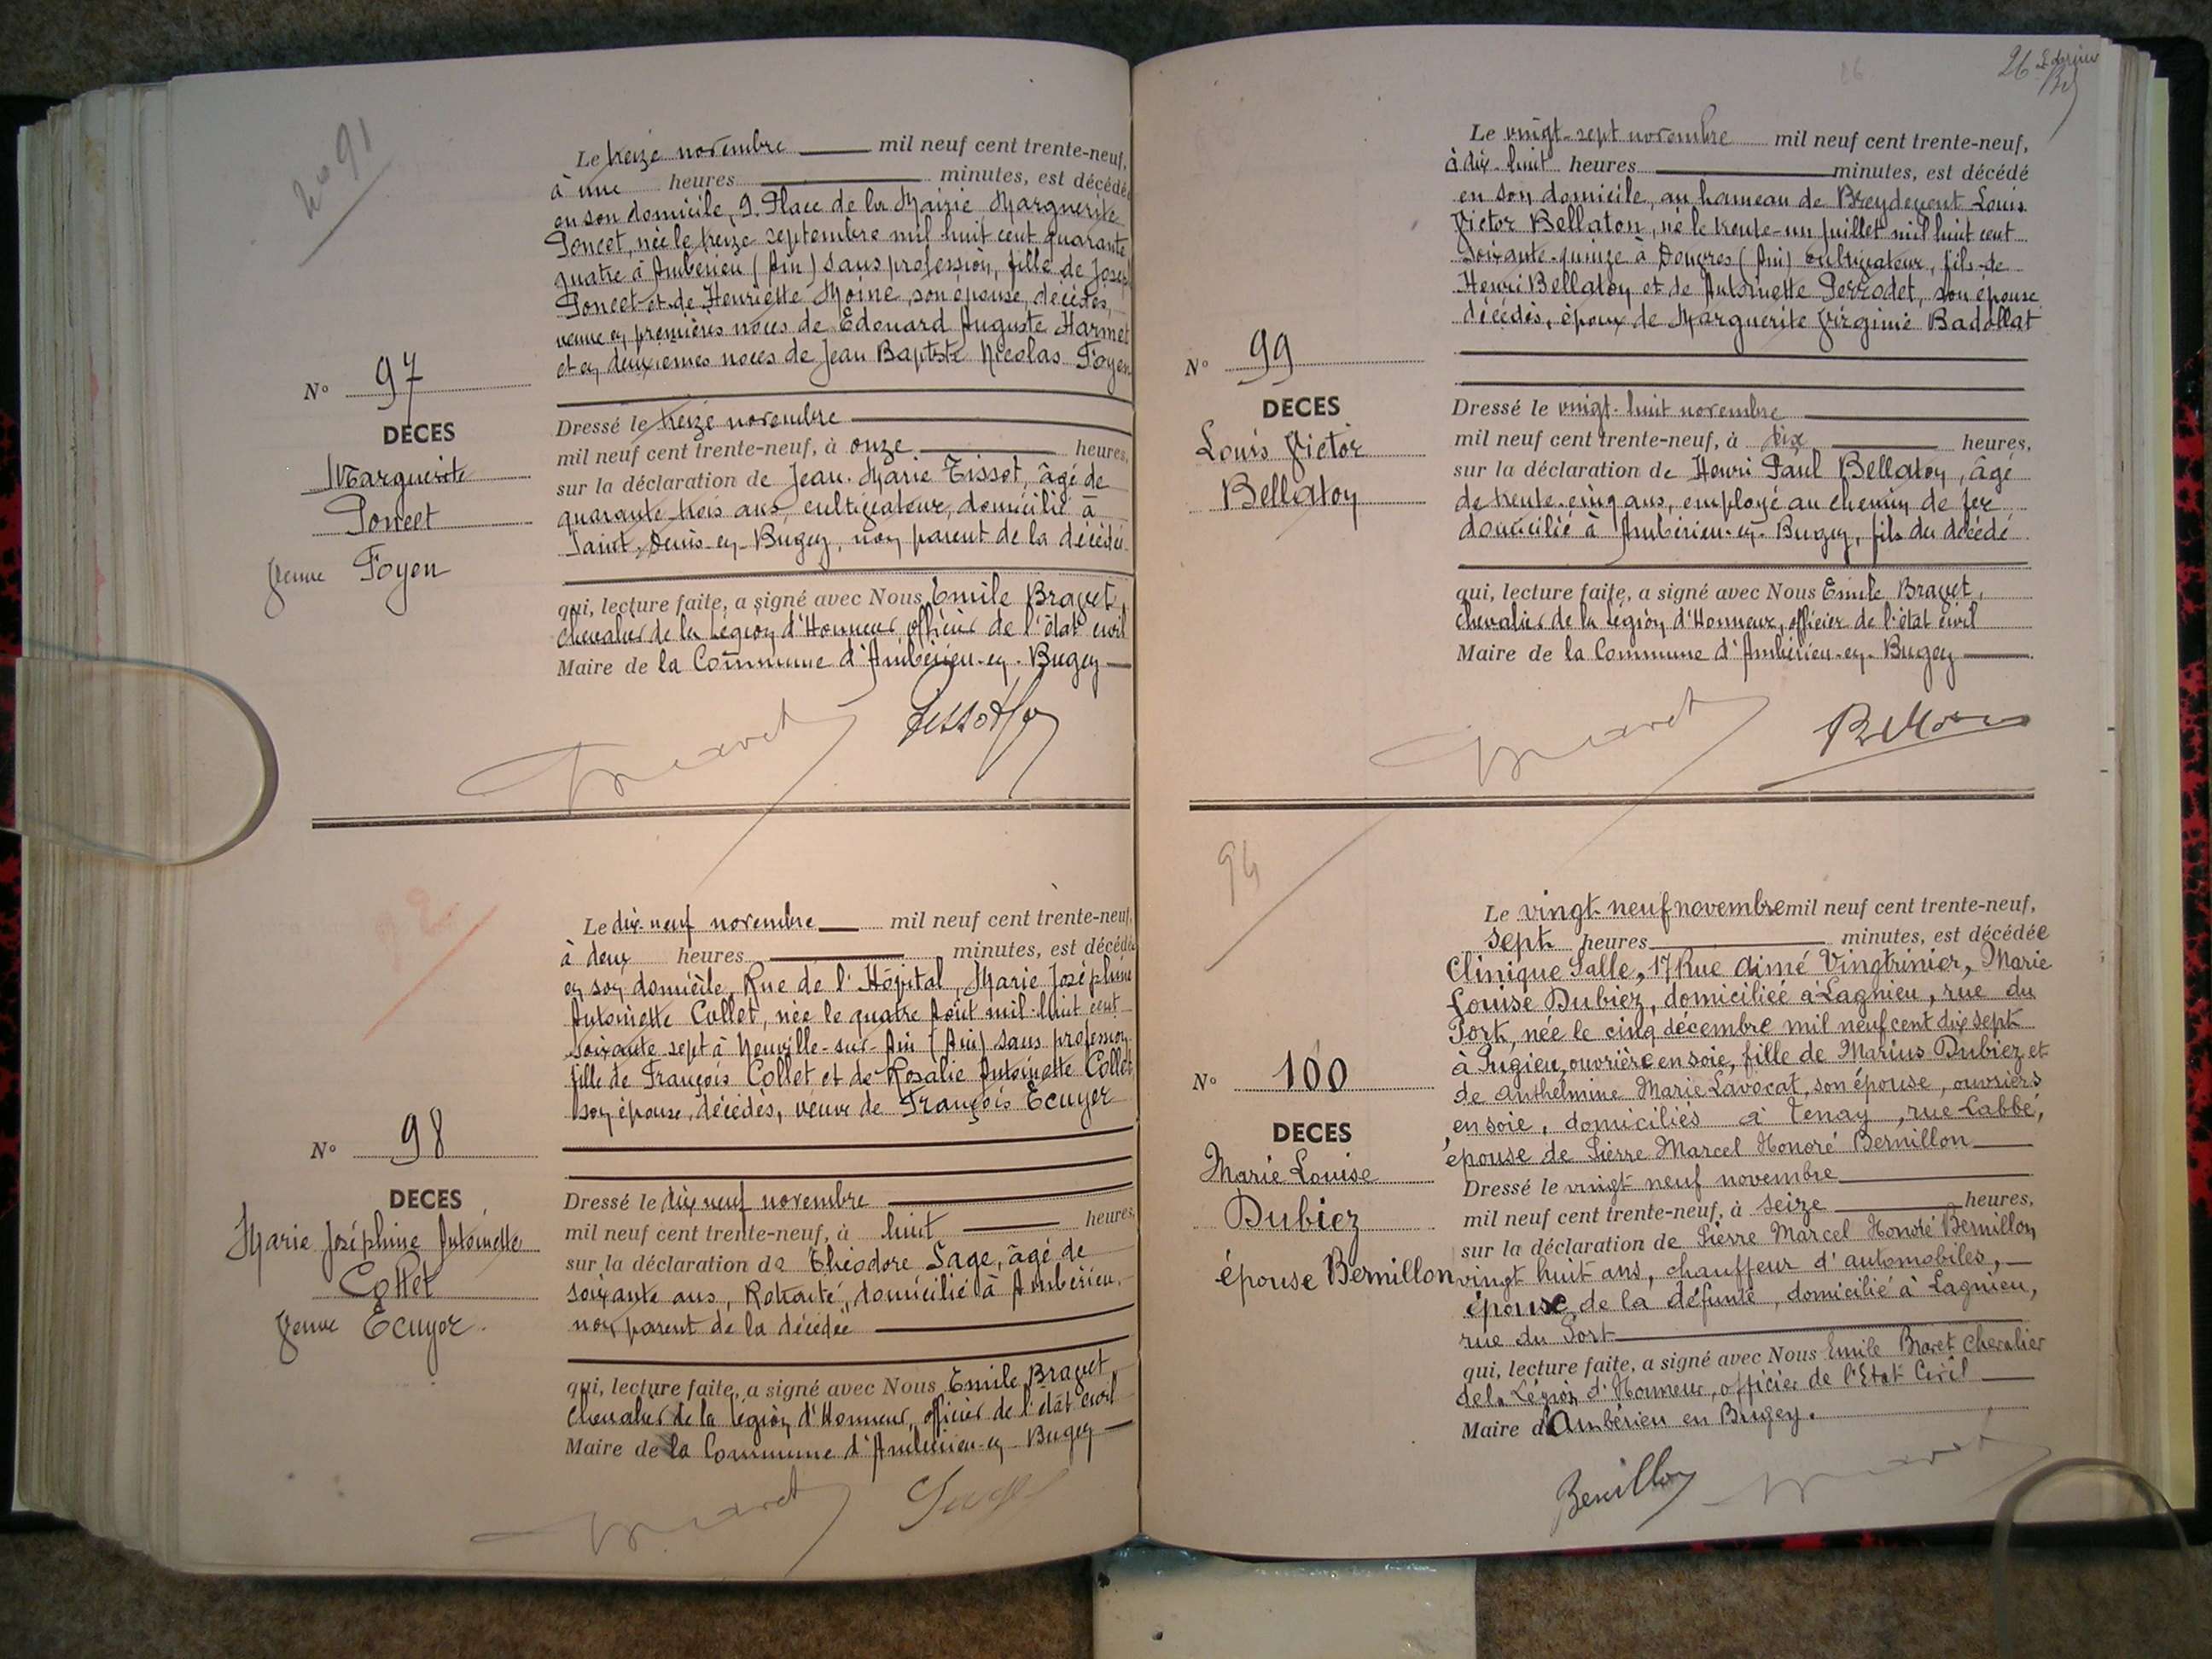 No 91
Le treize novembre mil neuf cent trente-neuf,
à une heures minutes, est décédée
en son domicile, 9. Place de la Mairie, Marguerite
Poncet, née le treize septembre mil huit cent quarante
quatre à Ambérieu (Ain) sans profession, fille de Joseph
Poncet et de Henriette Moine, son épouse, décédés,
veuve en premières noces de Edouard Auguste Harmet
et en deuxièmes noces de Jean Baptiste Nicolas Foyen
N° 97
DECES
Marguerite
Poncet
Veuve Foyen
Dressé le treize novembre
mil neuf cent trente-neuf, à onze heures,
sur la déclaration de Jean-Marie Tissot, âgé de
quarante-trois ans, cultivateur, domicilié à
Saint-Denis-en-Bugey, non parent de la décédée
qui, lecture faite, a signé avec Nous Emile Bravet,
Chevalier de la Légion d'Honneur, officier de l'état civil
Maire de la Commune d'Ambérieu-en-Bugey
Bravet Tissot
92
Le dix-neuf novembre mil neuf cent trente-neuf,
à deux heures minutes, est décédée
en son domicile, Rue de l'Hôpital, Marie Joséphine
Antoinette Collet, née le quatre Août mil-huit cent
soixante sept à Neuville-sur-Ain (Ain) sans profession
fille de François Collet et de Rosalie Antoinette Collet
son épouse, décédés, veuve de François Ecuyer
N° 98
DECES
Marie Joséphine Antoinette
Collet
Veuve Ecuyer.
Dressé le dix neuf novembre
mil neuf cent trente-neuf, à huit heures,
sur la déclaration de Théodore Sage, âgé de
soixante ans, Retraité, domicilié à Ambérieu,
non parent de la décédée
qui, lecture faite, a signé avec Nous Emile Bravet
Chevalier de la Légion d'Honneur, officier de l'état civil
Maire de la Commune d'Ambérieu-en-Bugey
Bravet Sage
26
Le vingt-sept novembre mil neuf cent trente-neuf,
à dix-huit heures minutes, est décédé
en son domicile, au hameau de Breydevent Louis
Victor Bellaton, né le trente-un juillet mil huit cent
soixante-quinze à Douvres (Ain) cultivateur, fils de
Henri Bellaton et de Antoinette Perrodet, son épouse
décédés, époux de Marguerite Virginie Badollat
N° 99
DECES
Louis Victor
Bellaton
Dressé le vingt-huit novembre
mil neuf cent trente-neuf, à dix heures,
sur la déclaration de Henri Paul Bellaton, âgé
de trente-cinq ans, employé au chemin de fer
domicilié à Ambérieu-en-Bugey, fils du décédé
qui, lecture faite, a signé avec Nous Emile Bravet,
Chevalier de la Légion d'Honneur, officier de l'état civil
Maire de la Commune d'Ambérieu-en-Bugey
Bravet
94
Le vingt-neuf novembre mil neuf cent trente-neuf,
sept heures minutes, est décédée
Clinique Salle, 17 Rue Aimé Vingtrinier, Marie
Louise Dubiez, domiciliée à Lagnieu, rue du
Port, née le cinq décembre mil neuf cent dix sept
à Pugieu, ouvrière en soie, fille de Marius Dubiez et
de Anthelmine Marie Lavocat, son épouse, ouvriers
en soie, domiciliés à Tenay, rue Labbé,
épouse de Pierre Marcel Honoré Bernillon
N° 100
DECES
Marie Louise
Dubiez
épouse Bernillon
Dressé le vingt neuf novembre
mil neuf cent trente-neuf, à seize heures,
sur la déclaration de Pierre Marcel Honoré Bernillon
vingt huit ans, chauffeur d'automobiles,
épouse de la défunte, domicilié à Lagnieu,
rue du Port
qui, lecture faite, a signé avec Nous Emile Bravet Chevalier
de la Légion d'Honneur, officier de l'Etat Civil
Maire d'Ambérieu en Bugey.
Bernillon Bravet